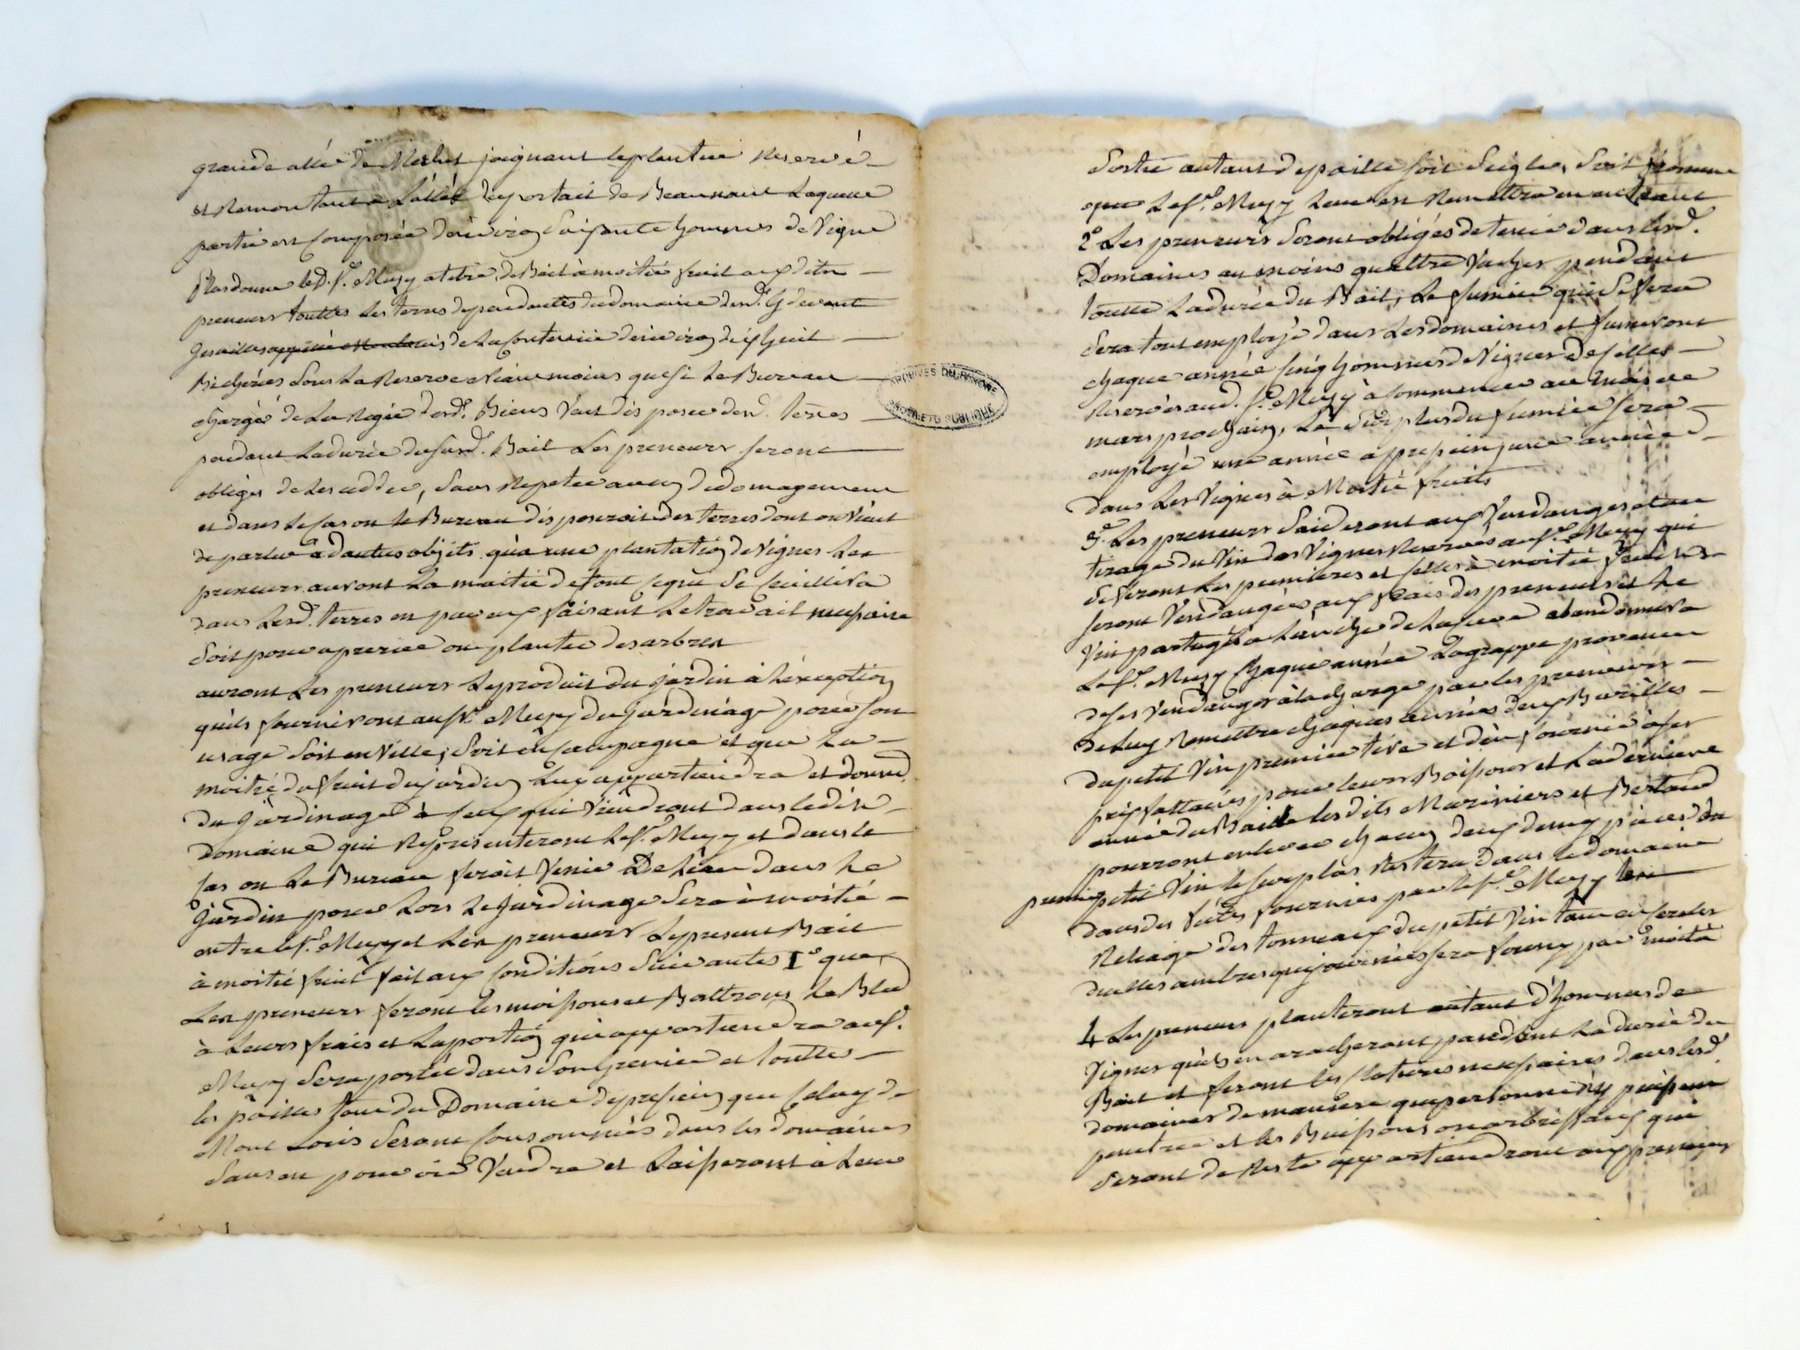 grande allée de joignant reservé
et Remontant à L'allée du portail de Beaunant Laquelle
partie est Composée d'environ Soixante hommes de Vigne
Plus donne led. Sr. Muzy à titre de Bail à moitié fruit auxdits
preneurs touttes les terres dépendantes du domaine
de la Contenüe d'environ dixhuit
Bicherées sous la Reserve néanmoins que si le Bureau
chargé de la Régie desd. Biens Vint à disposer desd. terres
pendant la durée dususd. Bail Les preneurs seront
obligés de les cedder, sans repeter aucun dedomagement
et dans le cas ou le Bureau disposeroit des terres dont on Vient
de parler à d'autres objets qu'à une plantation de Vignes Les
preneurs auront la moitié de tout ce qui se ceuillira
dans lesd. terres en par eux faisant le travail necessaire
Soit pour ou planter des arbres
auront les preneurs Le produit du jardin à L'exception
qu'ils fourniront au Sr. Muzy du jardinage pour son
usage soit en Ville, soit en Campagne et que la
moitié du fruit du jardin luy appartiendra et
du jardinage à ceux qui Viendront dans ledit
Domaine qui Representeront le Sr. Muzy et dans le
cas ou le Bureau feroit Venir De L'eau dans le
Jardin pour lors le jardinage sera à moitié
entre le Sr. Muzy et Les preneurs Le present Bail
à moitié fruit fait aux Conditions Suivantes 1° que
Les preneurs feront les moissons et Battront le Bled
à Leurs frais et La portion qui appartiendra au S.
Muzy sera portée dans son Grenier et touttes
les pailles tant du Domaine de que celuy de
Mont Louis seront Consommées dans les domaines
Sans en pouvoir Vendre et Laisseront à Leur
ARCHIVES DU RHONE
Sortie autant de paille soit Seigle, Soit froment
que Le Sr. Muzy Leur en Remettra en entrant
2° Les preneurs Seront obligés de tenir dans lesd.
Domaines au moins quattre Vaches pendant
toutte La durée du Bail, Le fumier qui se fera
Sera tout employé dans Les domaines et fumeront
chaque année Cinq hommes de Vignes de Celles
Reservées aud. Sr. Muzy à Commencer au mois de
mars prochain, Le Surplus du fumier sera
employé une année
dans Les Vignes à Moitié fruits
3° Les preneurs S'aideront aux Vendanges et au
tirage du Vin des Vignes Reservées au Sr. Muzy qui
Se feront Les premieres et Celles à moitié fruits
Seront Vendangées aux frais des preneurs et Le
Vin partagé à L'anche de la Cuve abandonnera
Le Sr. Muzy Chaque année La grappe provenant
de ses Vendanges à la charge par les preneurs
de Luy Remettre chaque année deux Barilles
du petit Vin premier tiré et d'en fournir à ses
prix fattaires pour leurs Boissons et La derniere
année du Bail lesdits Mariniers et Bertaud
pourront enlever chacun deux demy pieces du
premier petit Vin le Surplus Restera dans le domaine
dans des futes fournies par le Sr. Muzy
Reliage des tonneaux du petit Vin tant en Cercles
d'ailles sera fourny par moitié
4 Les preneurs planteront autant d'hommes de
Vignes qu'ils en aracheront pendant La durée du
Bail et feront les Clotures necessaires dans lesd.
domaines de maniere que personne n'y puisse
penetrer et les Buissons ou arbrisseaux qui
Seront de Reste appartiendront aux preneurs